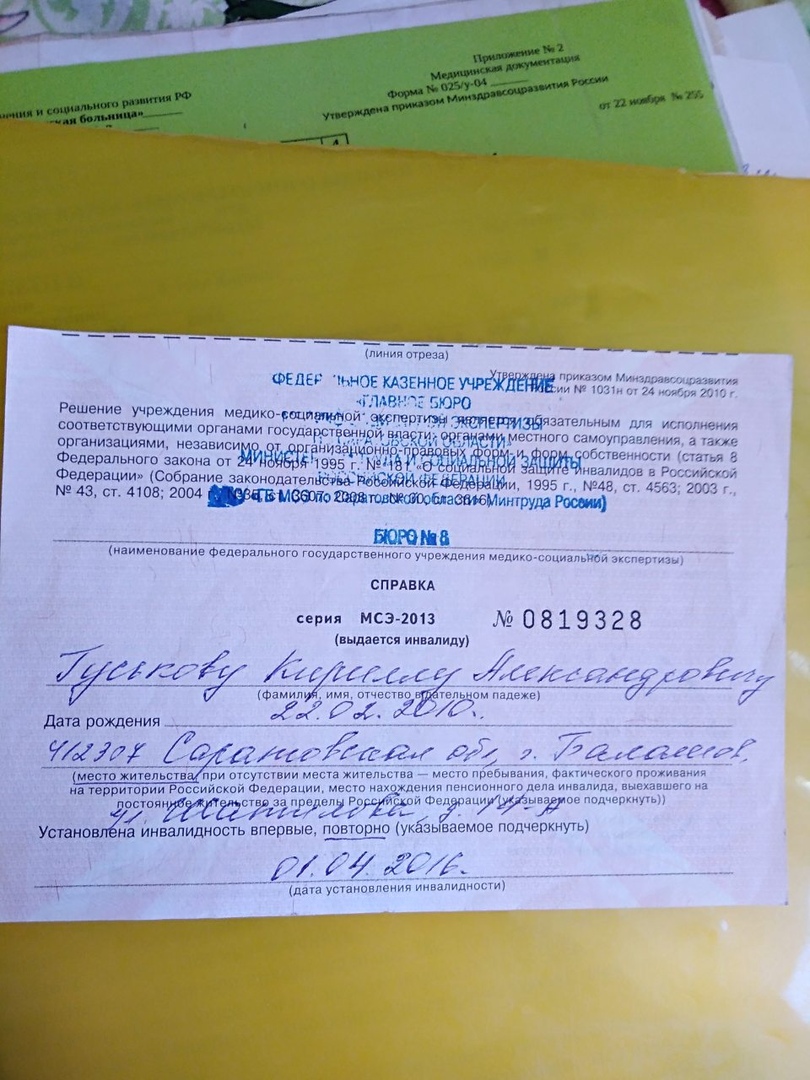 Приложение № 2
Медицинская документация
Форма № 025/у-04
Утверждена приказом Минздравсоцразвития России
от 22 ноября № 255
и социального развития РФ
больница»
(линия отреза)
Утверждена приказом Минздравсоцразвития
№ 1031н от 24 ноября 2010 г.
ФЕДЕР ЬНОЕ КАЗЕННОЕ УЧРЕЖДЕНИЕ
«ГЛАВНОЕ БЮРО
Решение учреждения медико-социальной экспертизы является обязательным для исполнения
соответствующими органами государственной власти, органами местного самоуправления, а также
организациями, независимо от организационно-правовых форм и форм собственности (статья 8
Федерального закона от 24 ноября 1995 г. № 181 «О социальной защите инвалидов в Российской
Федерации» (Собрание законодательства Российской Федерации, 1995 г., №48, ст. 4563; 2003 г.,
№ 43, ст. 4108; 2004 г.
ГБ МСЭ по Саратовской области Минтруда России)
БЮРО № 8
(наименование федерального государственного учреждения медико-социальной экспертизы)
СПРАВКА
серия МСЭ-2013 № 0819328
(выдается инвалиду)
Гуськову Кириллу Александровичу
(фамилия, имя, отчество в дательном падеже)
Дата рождения 22.02.2010г.
412307 Саратовская обл, г. Балашов,
(место жительства, при отсутствии места жительства — место пребывания, фактического проживания
на территории Российской Федерации, место нахождения пенсионного дела инвалида, выехавшего на
постоянное жительство за пределы Российской Федерации (указываемое подчеркнуть))
ул.
Установлена инвалидность впервые, повторно (указываемое подчеркнуть)
01.04.2016г.
(дата установления инвалидности)